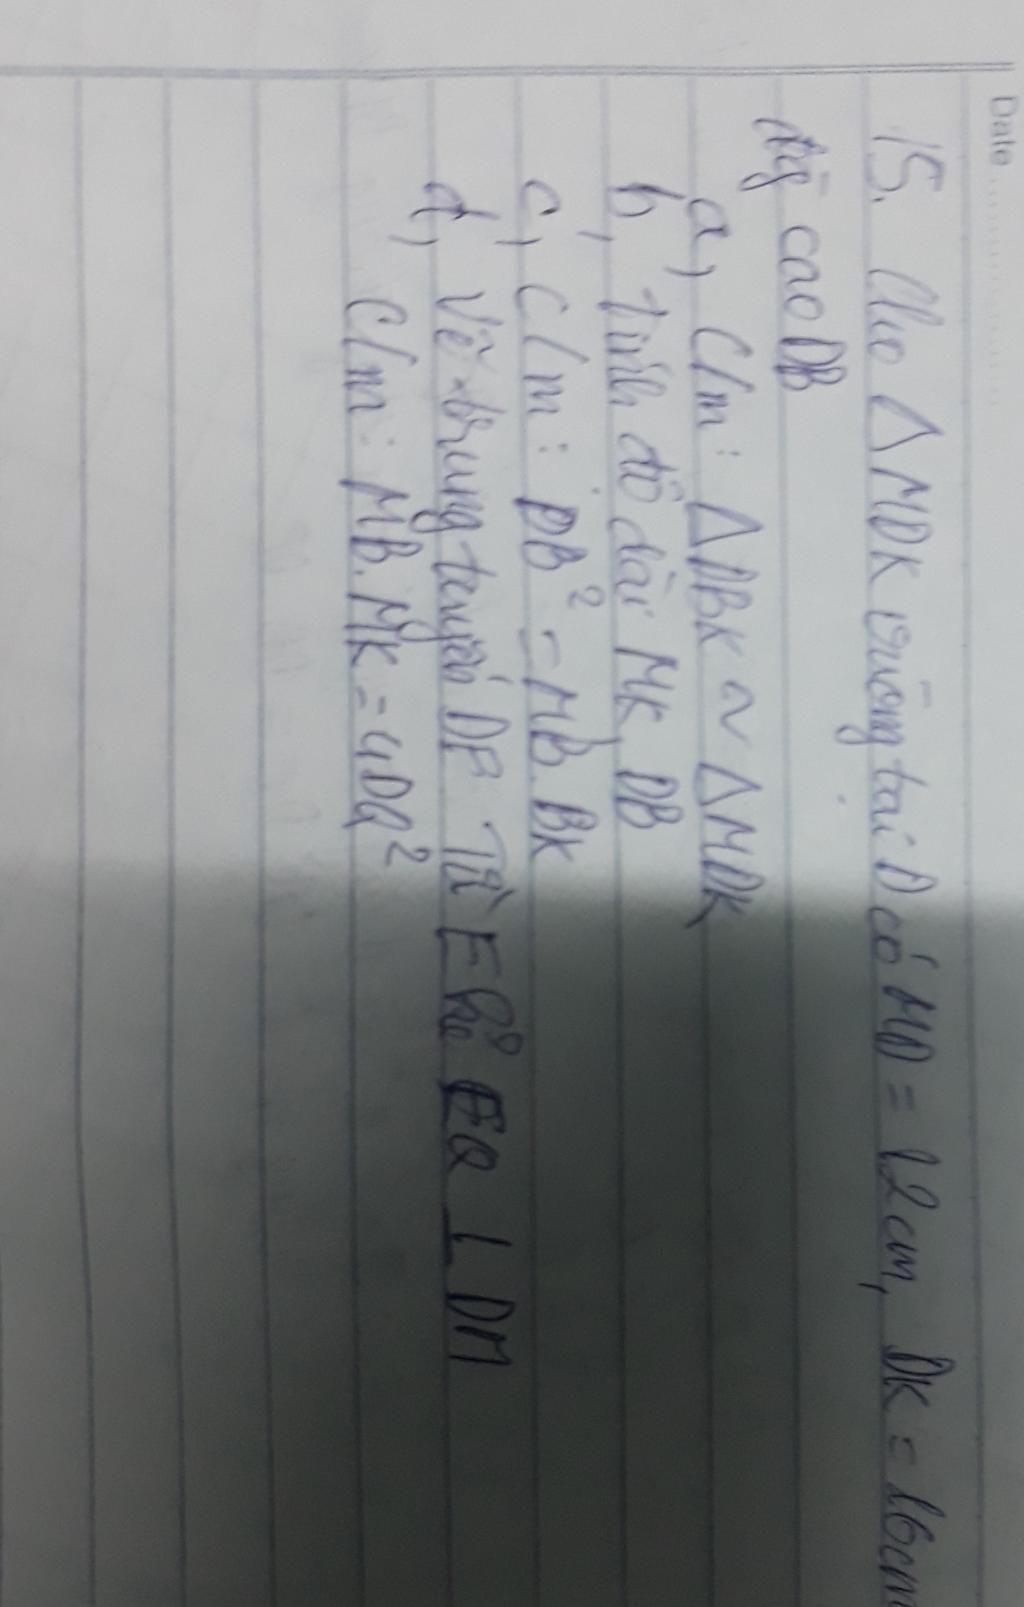 Date
15. Cho Δ MDK vuông tại D có MD = 12cm, DK = 16cm
đg cao DB
a, C/m: Δ DBK ~ Δ MDK
b, Tính độ dài MK, DB
c, C/m: DB² = MB.BK
d, Vẽ trung tuyến DE Từ E kẻ EQ ⊥ DM
C/m: MB.MK = 4DQ²